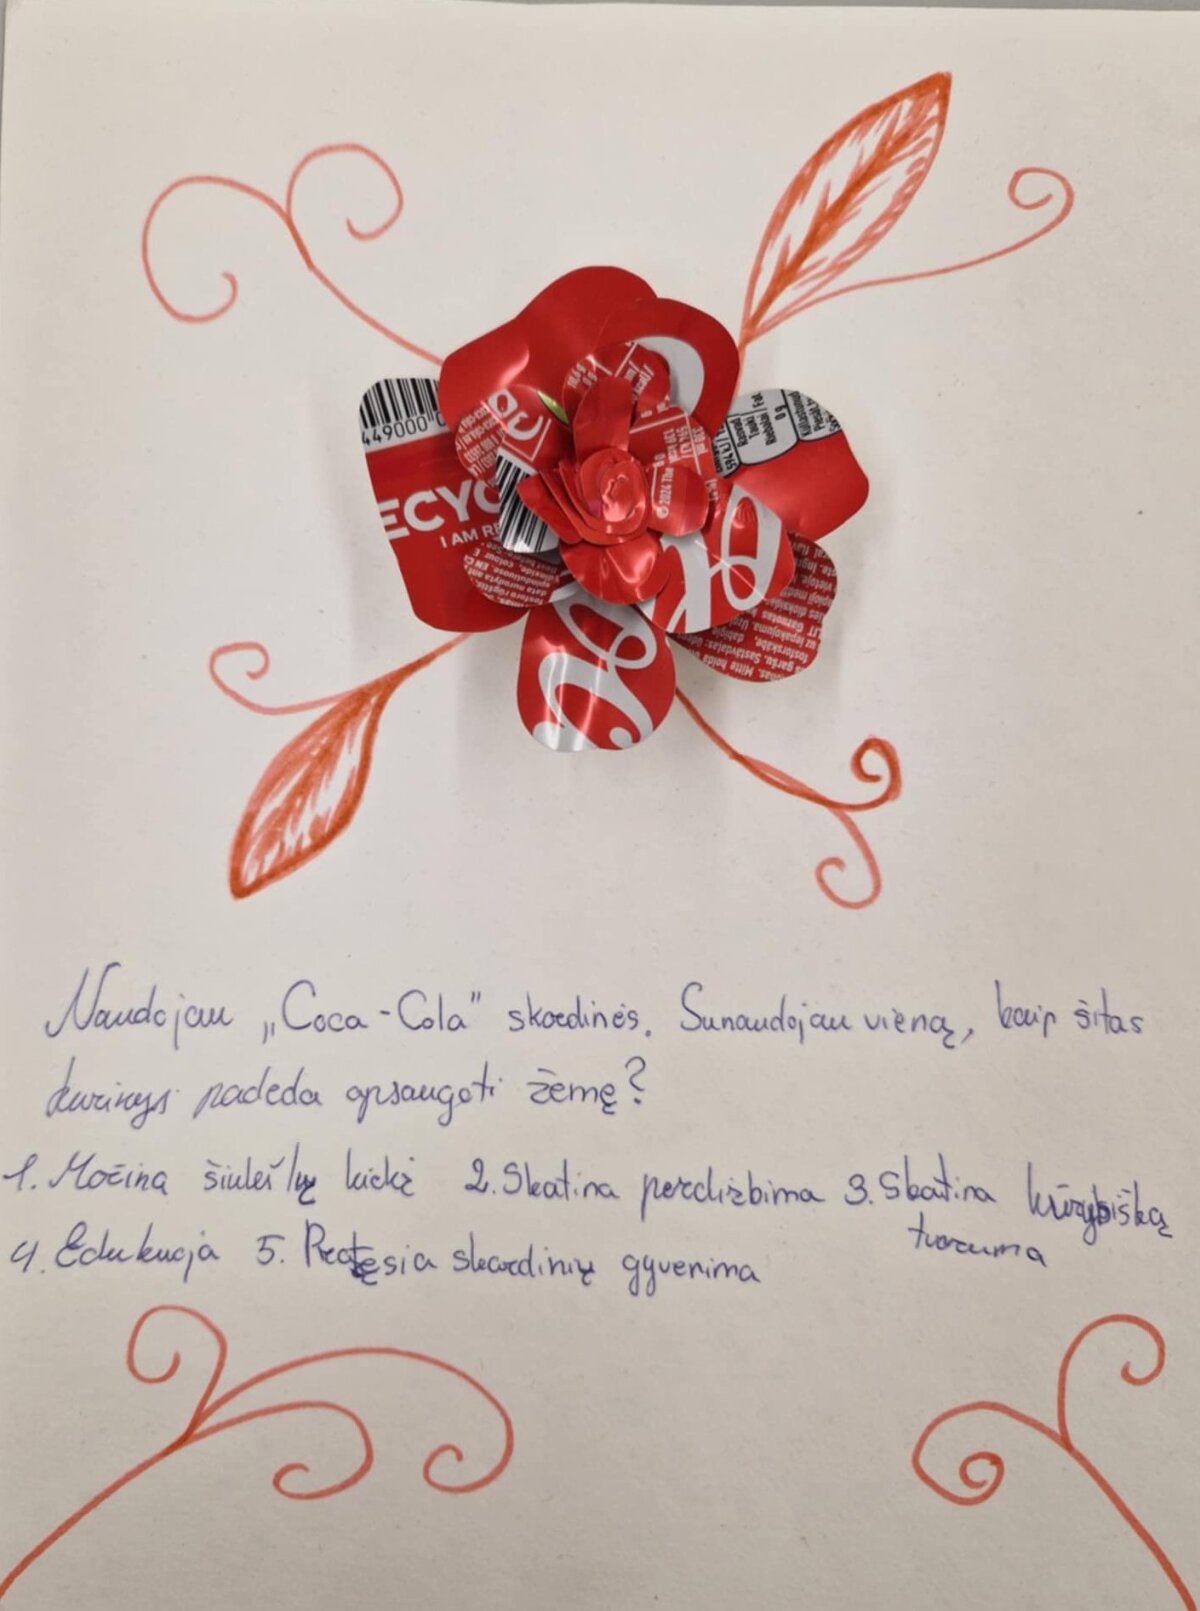 449000 0
ECYC
I AM RE
© 2024 The
Naudojau „Coca-Cola" skardinės. Sunaudojau vieną, kaip šitas
kurinys padeda apsaugoti žemę?
1. Mažina šiukšlių kiekį 2. Skatina perdirbima 3. Skatina kūrybišką
tvaruma
4. Edukacija 5. Pratęsia skardinių gyvenima